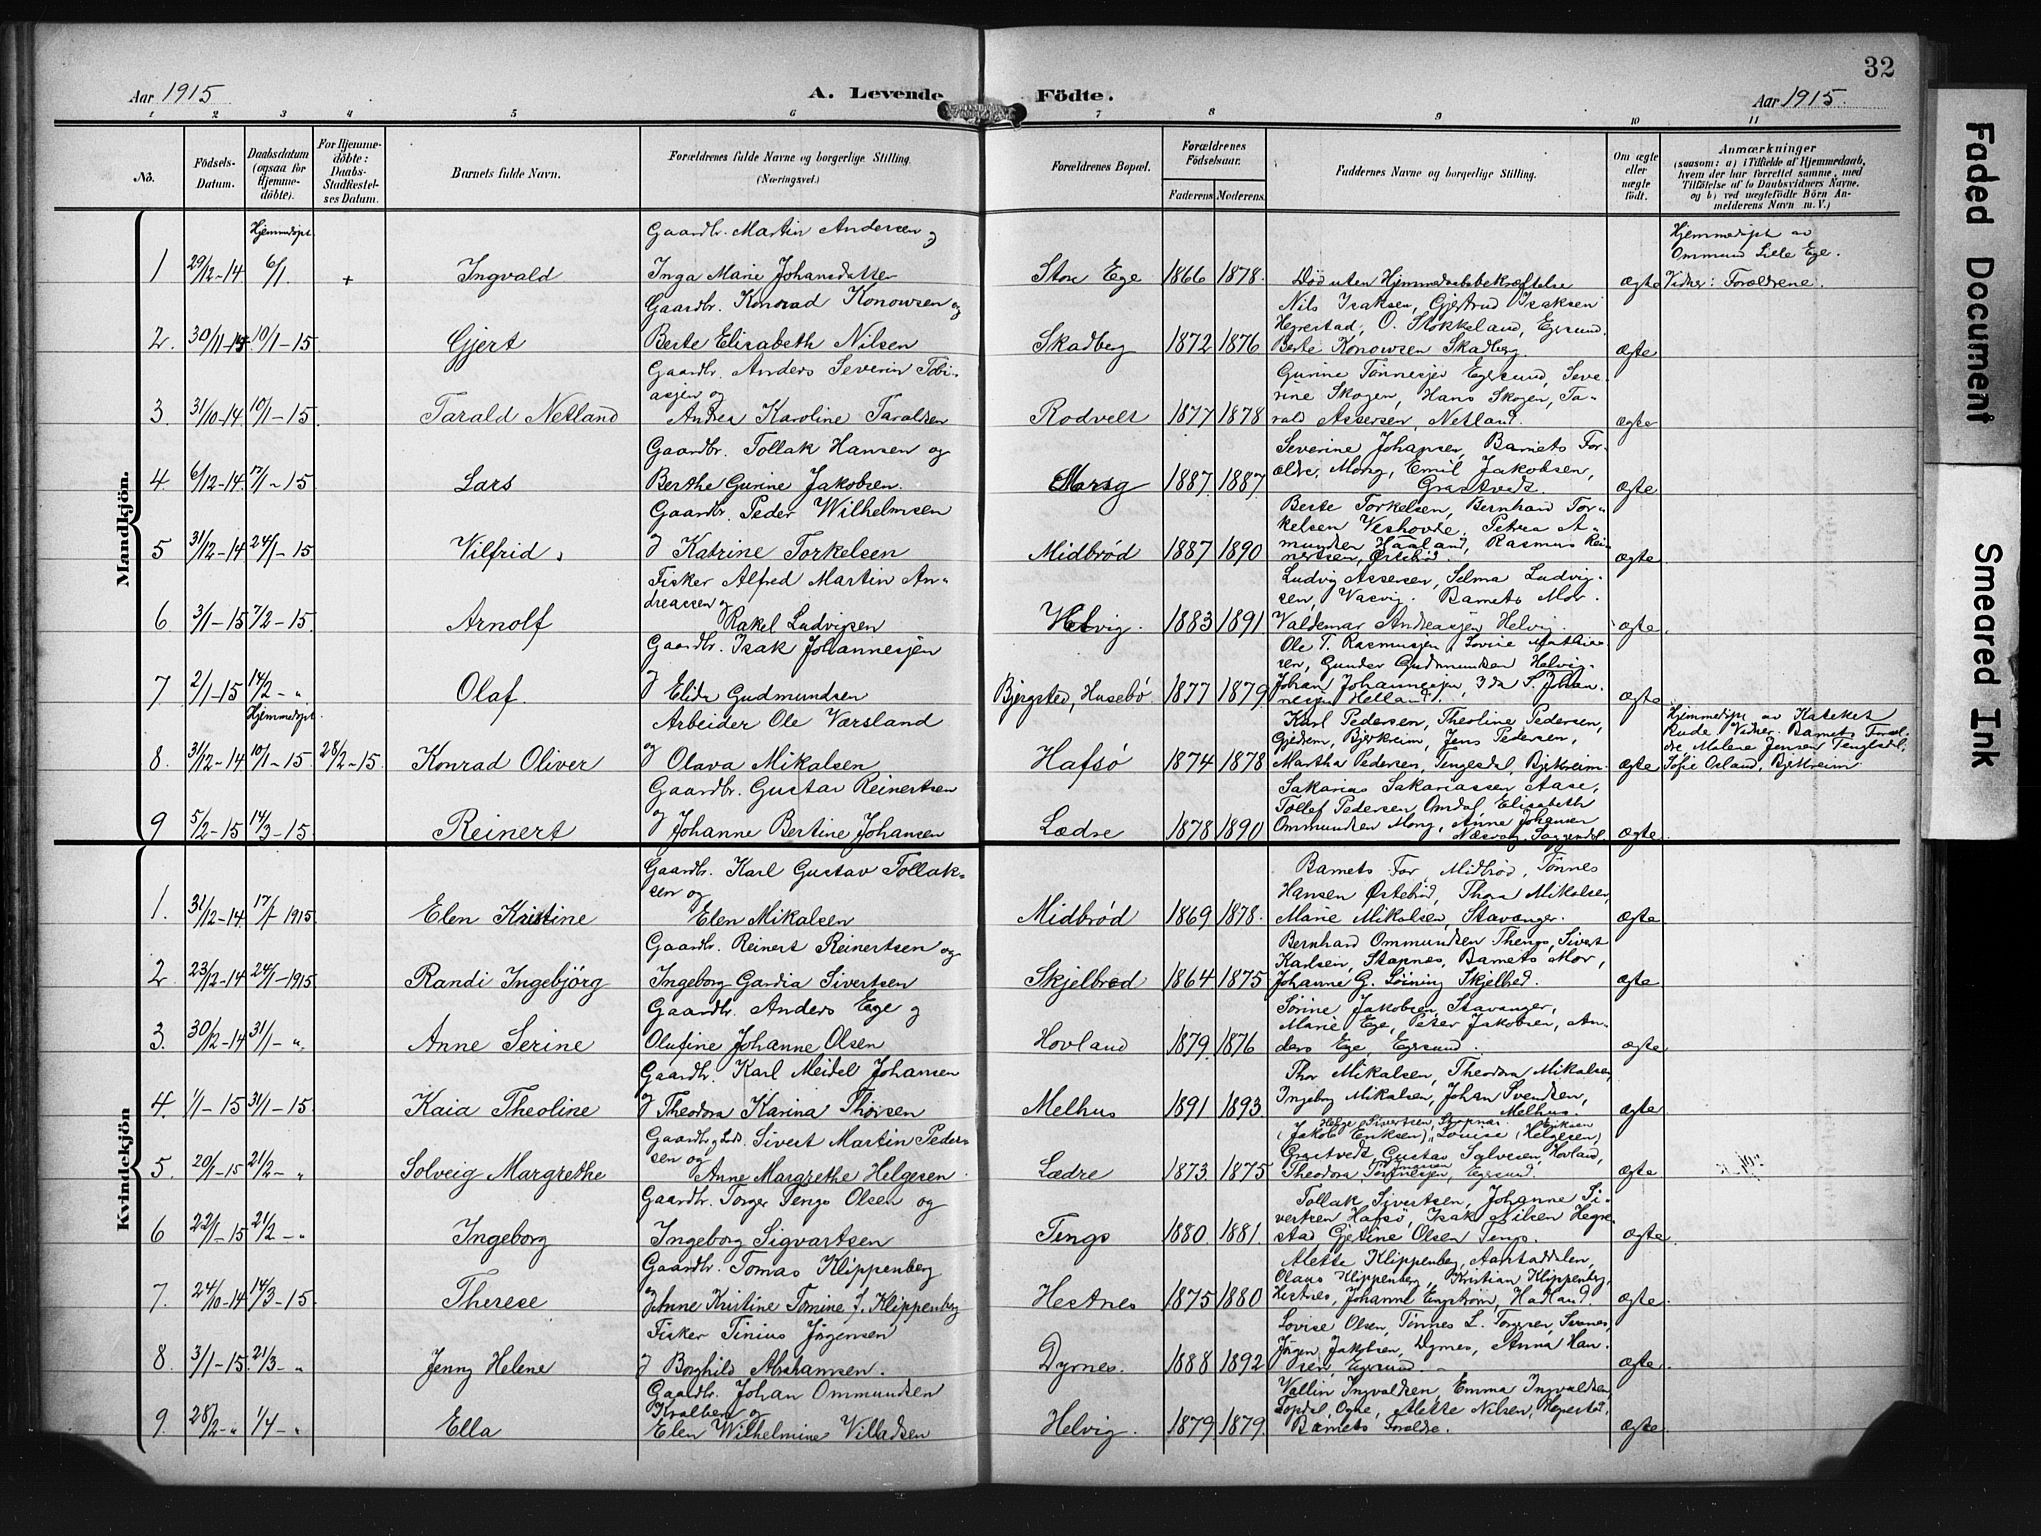 32
Aar 1915
A. Levende Födte.
Aar 1915.
1 2 3 4 5 6 7 8 9 10 11
No.
Födsels-Datum.
Daabsdatum (ogsaa for Hjemmedöbte).
For Hjemmedöbte: Daabs-Stadfæstelses Datum.
Barnets fulde Navn.
Forældrenes fulde Navne og borgerlige Stilling. (Næringsvei.)
Forældrenes Bopæl.
Forældrenes Födselsaar.
Faderens Moderens
Faddernes Navne og borgerlige Stilling.
Om ægte eller uægte födt.
Anmærkninger
(saasom: a) i Tilfælde af Hjemmedaab, hvem der har forrettet samme, med Tilföielse af to Daabsvidners Navne, og b) ved uægtefödte Börn Anmelderens Navn m. V.)
Mandkjön.
1 29/12-14 Hjemmedøpt 6/1 + Ingvald
Gaardbr. Martin Andersen og
Inga Marie Johansdatter
Store Ege 1866 1878.
Död uten Hjemmedaabsbekræftelse
ægte
Hjemmedøpt av
Ommund Lille Ege.
Vidner: Forældrene.
2. 30/11-14 10/1-15 Gjert
Gaardbr. Konrad Konowsen og
Berte Elisabeth Nilsen
Skadberg 1872 1876
Nils Isaksen, Gjertrud Isaksen
Hegrestad, O. Stokkeland, Egersund.
Berte Konowsen Skadberg.
ægte
3. 31/10-14 10/1-15 Tarald Netland
Gaardbr. Anders Severin Tobi-
asjen og
Andrea Karoline Taraldsen
Rodvelt 1877 1878
Gurine Tönnesjen Egersund, Seve-
rine Skogen, Hans Skogen, Ta-
rald Assersen, Netland.
ægte
4. 6/12-14 17/1-15 Lars
Gaardbr. Tollak Hansen og
Berthe Gurine Jakobsen.
Mong 1887. 1887.
Severine Johansen, Barnets For-
ældre, Mong, Emil Jakobsen,
Grastveds.
ægte
5 31/12-14 24/1-15 Vilfrid
Gaardbr. Peder Wilhelmsen
og Katrine Torkelsen
Midbrød 1887 1890
Berte Torkelsen, Bernhard Tor-
kelsen Veshovde, Petrea A-
mundsen Haaland, Rasmus Rei-
nertsen, Østebø.
ægte
6 3/1-15 7/2-15. Arnolf
Fisker Alfred Martin An-
dreassen og
Rakel Ludvigsen
Helvig. 1883 1891
Ludvig Assersen, Selma Ludvig-
sen, Vasvig. Barnets Mor.
Valdemar Andreassen Helvig.
ægte
7 2/1-15 14/2-" Olaf.
Gaardbr. Isak Johannesjen
og Elida Gudmundsen
Bjergsted, Husebø 1877 1879
Ole T. Rasmusjen, Lovise Mathia-
sen, Gunder Gudmundsen Helvig.
Johan Johannesjen, Ida S. Johan-
nesjen Helland.
ægte
8. 31/12-14 Hjemmedøpt 10/1-15 28/2-15. Konrad Oliver
Arbeider Ole Værsland
og Olava Mikalsen
Hafsö 1874 1878
Karl Pedersen, Theoline Pedersen,
Gjedrem, Bjerkreim, Jens Pedersen,
Martha Pedersen, Tengesdal, Bjerkreim.
ægte
Hjemmedøpt av Kateket
Rude Vidner. Barnets Foræl-
dre, Malene Jensen Tengesdal,
Sofie Osland, Bjerkreim
9 5/2-15 14/3-15. Reinert
Gaardbr. Gustav Reinertsen
og Johanne Bertine Johansen
Lædre 1878 1890
Sakarias Sakariassen Aase,
Tollef Pedersen Omdal Elisabeth
Ommundsen Mong, Anne Johansen
ægte
Kvindekjön
1. 31/12-14. 17/1-1915. Elen Kristine
Gaardbr. Karl Gustav Tollak-
sen og
Elen Mikalsen
Midbrød 1869 1878.
Barnets Far, Midbrød, Tönnes
Hansen Østebød, Thora Mikalsen,
Marie Mikalsen, Stavanger.
ægte
2. 23/12-14 24/1-1915 Randi Ingebjörg
Gaardbr. Reinert Reinertsen og
Ingeborg Gardia Sivertsen
Skjelbred 1864 1875
Bernhard Ommundsen Thengs, Sivert
Karlsen, Stapnes, Barnets Mor,
Johanne G. Löining Skjelbred.
ægte
3. 30/12-14 31/1-" Anne Serine
Gaardbr. Anders Ege og
Olufine Johanne Olsen
Hovland 1879. 1876
Sörine Jakobsen Stavanger,
Marie Ege, Peter Jakobsen, An-
ders Ege, Egersund.
ægte
4. 1/1-15 31/1-15. Kaia Theoline
Gaardbr. Karl Meidel Johansen
og Theodora Karina Thorsen
Melhus 1891 1893
Thor Mikalsen, Theodora Mikalsen,
Ingeborg Mikalsen, Johan Svendsen,
Melhus.
ægte
5. 20/1-15 21/2-" Solveig Margrethe
Gaardbr. og Lods. Sivert Martin Peder-
sen og
Anne Margrethe Helgesen.
Lædre 1873. 1875
Helge Sivertsen, Stapnes. Eriksen
(Jakob Eriksen), Lovise (Helgesen)
Grastvedt, Gustav Salvesen, Hovland,
Theodora Tönnesjen, Egersund.
ægte
6 22/1-15 21/2-" Ingeborg
Gaardbr. Torger Tengs Olsen og
Ingeborg Sigvartsen
Tengs 1880. 1881.
Tollak Sivertsen, Johanne Si-
vertsen Hafsö, Isak Nilsen Hegre-
stad, Gjertine Olsen Tengs.
ægte
7. 24/10-14 14/3-15. Therese
Gaardbr. Tomas Klippenberg
og Anne Kristine Tomine f. Klippenberg
Hestnes 1875 1880
Alette Klippenberg, Aarstaddalen,
Olaus Klippenberg, Kristian Klippenberg,
Hestnes, Johanne Engström, Haaland.
ægte
8. 3/1-15. 21/3-" Jenny Helene
Fisker Tinius Jörgensen
og Borghild Abrahamsen.
Dyrnes. 1888 1892
Lovise Olsen, Tönnes L. Torgersen, Svanes,
Jörgen Jakobsen, Dyrnes, Anna Han-
sen, Egersund
ægte
9. 28/2-" 1/4-" Ella
Gaardbr. Johan Ommundsen
Kralberg og
Elen Wilhelmine Villadsen
Helvig. 1879 1879.
Vallin Ingvaldsen, Emma Ingvaldsen
Topdal, Ogne, Alette Nilsen, Hegrestad,
Barnets Forældre.
ægte
Faded Document
Smeared Ink